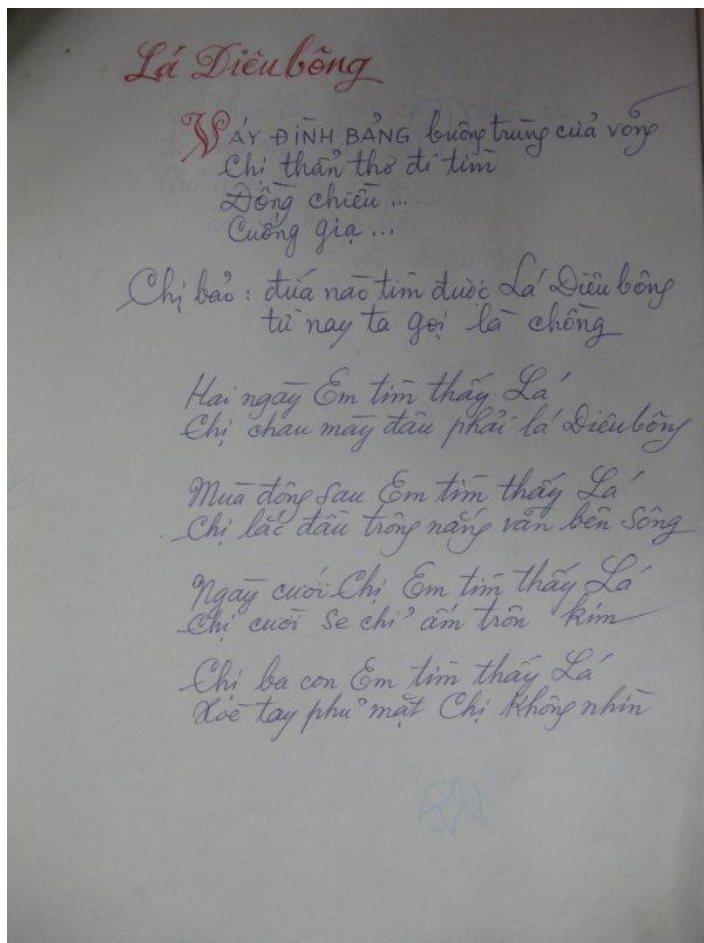 Lá Diêu bông
VÁY ĐÌNH BẢNG buông trùng cửa võng
Chị thẩn thơ đi tìm
Đồng chiều ...
Cuống giạ ...
Chị bảo : đứa nào tìm được Lá Diêu bông
từ nay ta gọi là chồng
Hai ngày Em tìm thấy Lá
Chị chau mày đâu phải lá Diêu bông
Mùa đông sau Em tìm thấy Lá
Chị lắc đầu trông nắng vãn bên Sông
Ngày cưới Chị Em tìm thấy Lá
Chị cười se chỉ ấm trôn kim
Chị ba con Em tìm thấy Lá
Xòe tay phủ mặt Chị không nhìn